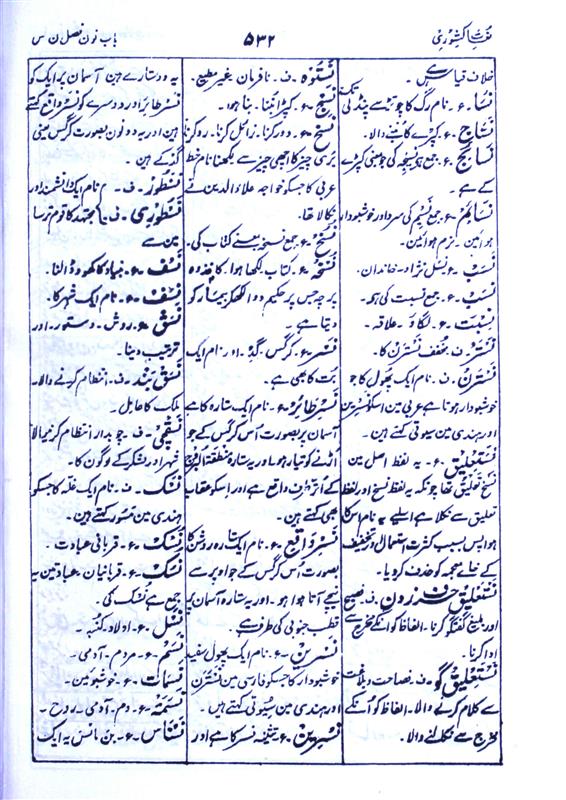 لغات کشوری
۵۳۲
باب نون فصل ن س
خلاف قیاس ہیں۔
نَسَا۔ ع۔ نام رگ کا جو ترسے پنڈلی تک
نَسَّاج۔ ع۔ کپڑے کا بُننے والا۔
نَسَائج۔ ع۔ جمع نسیجہ کی جو معنی کپڑے
کے ہے۔
نَسَائم۔ ع۔ جمع نسیم کی سرد اور خوشبودار
ہوائین۔ نرم ہوائین۔
نَسَب۔ ع۔ نسل نژاد۔ خاندان۔
نِسَب۔ ع۔ جمع نسبت کی ہے۔
نِسبت۔ ع۔ لگاؤ۔ علاقہ۔
نَستر۔ ف۔ مخفف نسترن کا۔
نَسترن۔ ف۔ نام ایک پھول کا جو
خوشبودار ہوتا ہے عربی مین اسکو نسرین
اور ہندی مین سیوتی کہتے ہین۔
نَستعلیق۔ ع۔ یہ لفظ اصل مین
نسخ تعلیق تھا چونکہ یہ لفظ نسخ اور لفظ
تعلیق سے نکلا ہے اسلیے یہ نام اس کا
ہوا پس بسبب کثرت استعمال و تخفیف
کے خاے معجمہ کو حذف کر دیا۔
نَستعلیق حرف زدن۔ ف۔ فصیح
اور بلیغ گفتگو کرنا۔ الفاظ کو انکے مخرج سے
ادا کرنا۔
نَستعلیق گو۔ ف۔ فصاحت و بلاغت
سے کلام کرنے والا۔ الفاظ کو اُنکے
مخرج سے نکالنے والا۔
نَستوہ۔ ف۔ نافرمان غیر مطیع۔
نَسج۔ ع۔ کپڑا بُننا۔ بنا ہوا۔
نَسخ۔ ع۔ دور کرنا۔ زائل کرنا۔ رد کرنا
بری چیز کا اچھی چیز سے لکھنا نام خط
عربی کا جسکو خواجہ علاؤ الدین نے
نکالا تھا۔
نُسَخ۔ ع۔ جمع نسخہ بمعنے کتاب کی۔
نُسخہ۔ ع۔ کتاب لکھا ہوا۔ کاغذ وہ
پرچہ جس پر حکیم دوا لکھ کر بیمار کو
دیتا ہے۔
نَسر۔ ع۔ کرگس۔ گِد۔ اور نام ایک
بت کا بھی ہے۔
نَسر طائر۔ ع۔ نام ایک ستارہ کا ہے
آسمان پر بصورت اُس کرگس کے جو
اُڑنے کو تیار ہو۔ اور یہ ستارہ منطقۃ البروج
کے اُتر طرف واقع ہے اور اسکو عقاب
بھی کہتے ہین۔
نَسر واقع۔ ع۔ نام ایک ستارہ روشن کا
بصورت اُس کرگس کے جو اوپر سے
نیچے آتا ہوا ہو۔ اور یہ ستارہ آسمان پر
قطب جنوبی کی طرف ہے۔
نَسرین۔ ع۔ نام ایک پھول سفید
خوشبودار کا جسکو فارسی مین نسترن
اور ہندی مین سیوتی کہتے ہین۔
نَسرین۔ ع۔ تثنیہ نسر کا ہے اور
یہ دو ستارے ہین آسمان پر ایک کو
نسر طائر اور دوسرے کو نسر واقع کہتے
ہین اور یہ دونون بصورت کرگس یعنی
گد کے ہین۔
نَسطور۔ ف۔ نام ایک دانشمند اور
نَسطوری۔ ف۔ مجتہد کا قوم ترسا
مین سے
نَسف۔ ع۔ بنیاد کا کھود ڈالنا۔
نَسَف۔ ع۔ نام ایک شہر کا۔
نَسق۔ ع۔ روش۔ دستور۔ اور
ترتیب دینا۔
نَسق بند۔ ف۔ انتظام کرنے والا۔
ملک کا عامل۔
نَسقچی۔ ف۔ چوبدار انتظام کرنیوالا
شہر اور لشکر کے لوگون کا۔
نَسک۔ ف۔ نام ایک غلہ کا جسکو
ہندی مین مسور کہتے ہین۔
نُسک۔ ع۔ قربانی عبادت۔
نُسُک۔ ع۔ قربانیان عبادتین یہ
جمع ہے نُسک کی۔
نَسل۔ ع۔ اولاد۔ کنبہ۔
نَسَم۔ ع۔ مردم۔ آدمی۔
نَسمات۔ ع۔ خوشبوئین۔
نَسَمَہ۔ ع۔ دم۔ آدمی۔ روح۔
نَسناس۔ ع۔ بن مانس یہ ایک